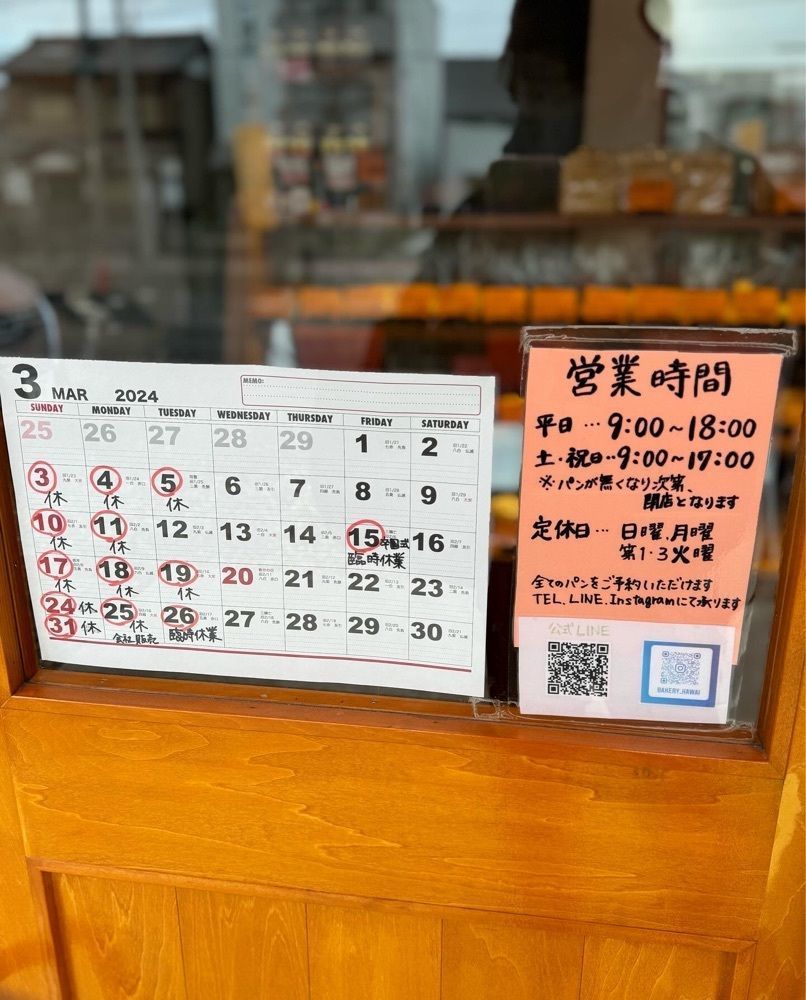 3 MAR 2024
MEMO:
SUNDAY MONDAY TUESDAY WEDNESDAY THURSDAY FRIDAY SATURDAY
25 26 27 28 29 1 2
3 4 5 6 7 8 9
休 休 休
10 11 12 13 14 15 16
卒園式
休 休 臨時休業
17 18 19 20 21 22 23
休 休 休
24 休 25 26 27 28 29 30
31 休 会社販売 臨時休業
営業時間
平日…9:00~18:00
土・祝日…9:00~17:00
※パンが無くなり次第、
閉店となります
定休日…日曜、月曜
第1・3火曜
全てのパンをご予約いただけます
TEL、LINE、Instagramにて承ります
公式LINE
BAKERY.HAWAI